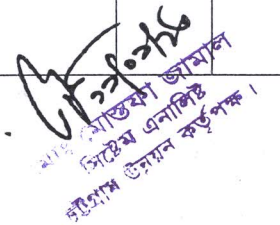 মোস্তফা জামাল
সিস্টেম এনালিষ্ট
চট্টগ্রাম উন্নয়ন কর্তৃপক্ষ।